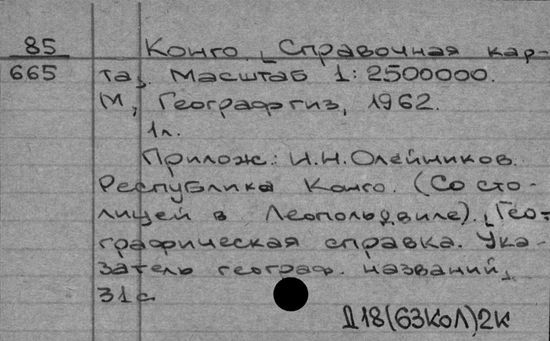 85
665
Конго. [Справочная кар-
та]. Масштаб 1:2500000.
М, Географгиз, 1962.
1л.
Прилож.: И.Н.Олейников.
Республика Конго. (Со сто-
лицей в Леопольдвиле). [Гео-
графическая справка. Ука-
затель географ. названий]
31с
Д18(63Кол)2К